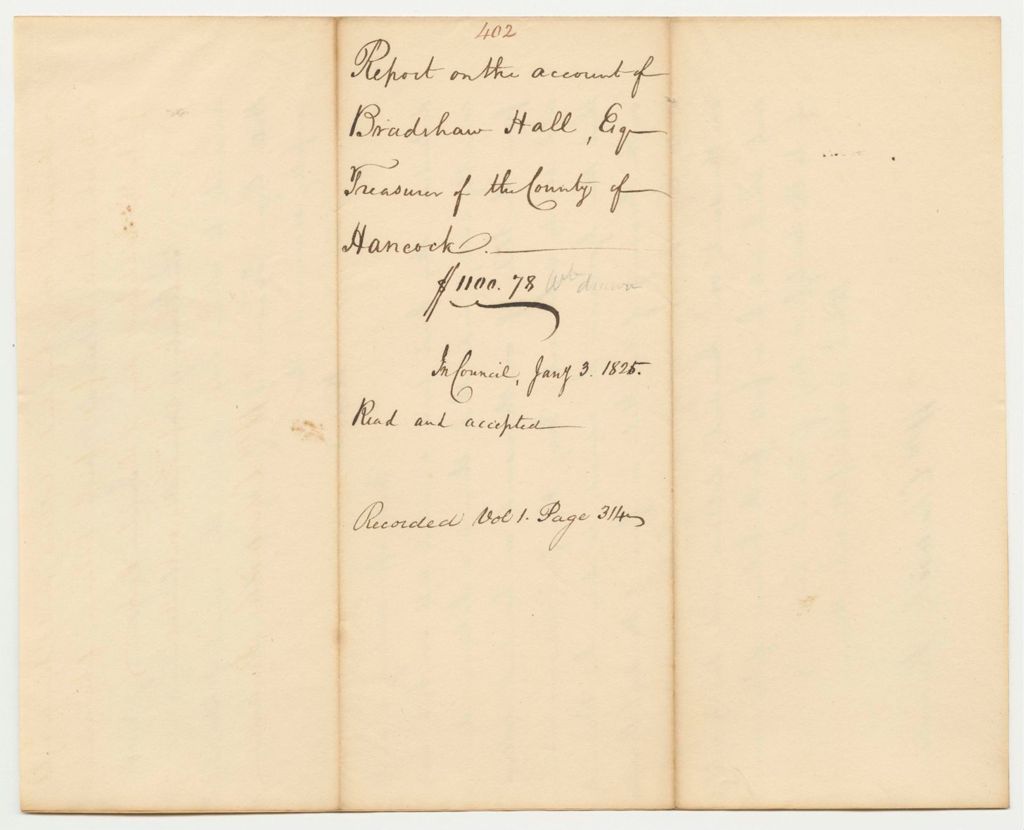 402
Report on the account of
Bradshaw Hall, Esq
Treasurer of the County of
Hancock.
$1100.78 drawn
In Council, Jany 3. 1825.
Read and accepted
Recorded Vol 1. Page 314